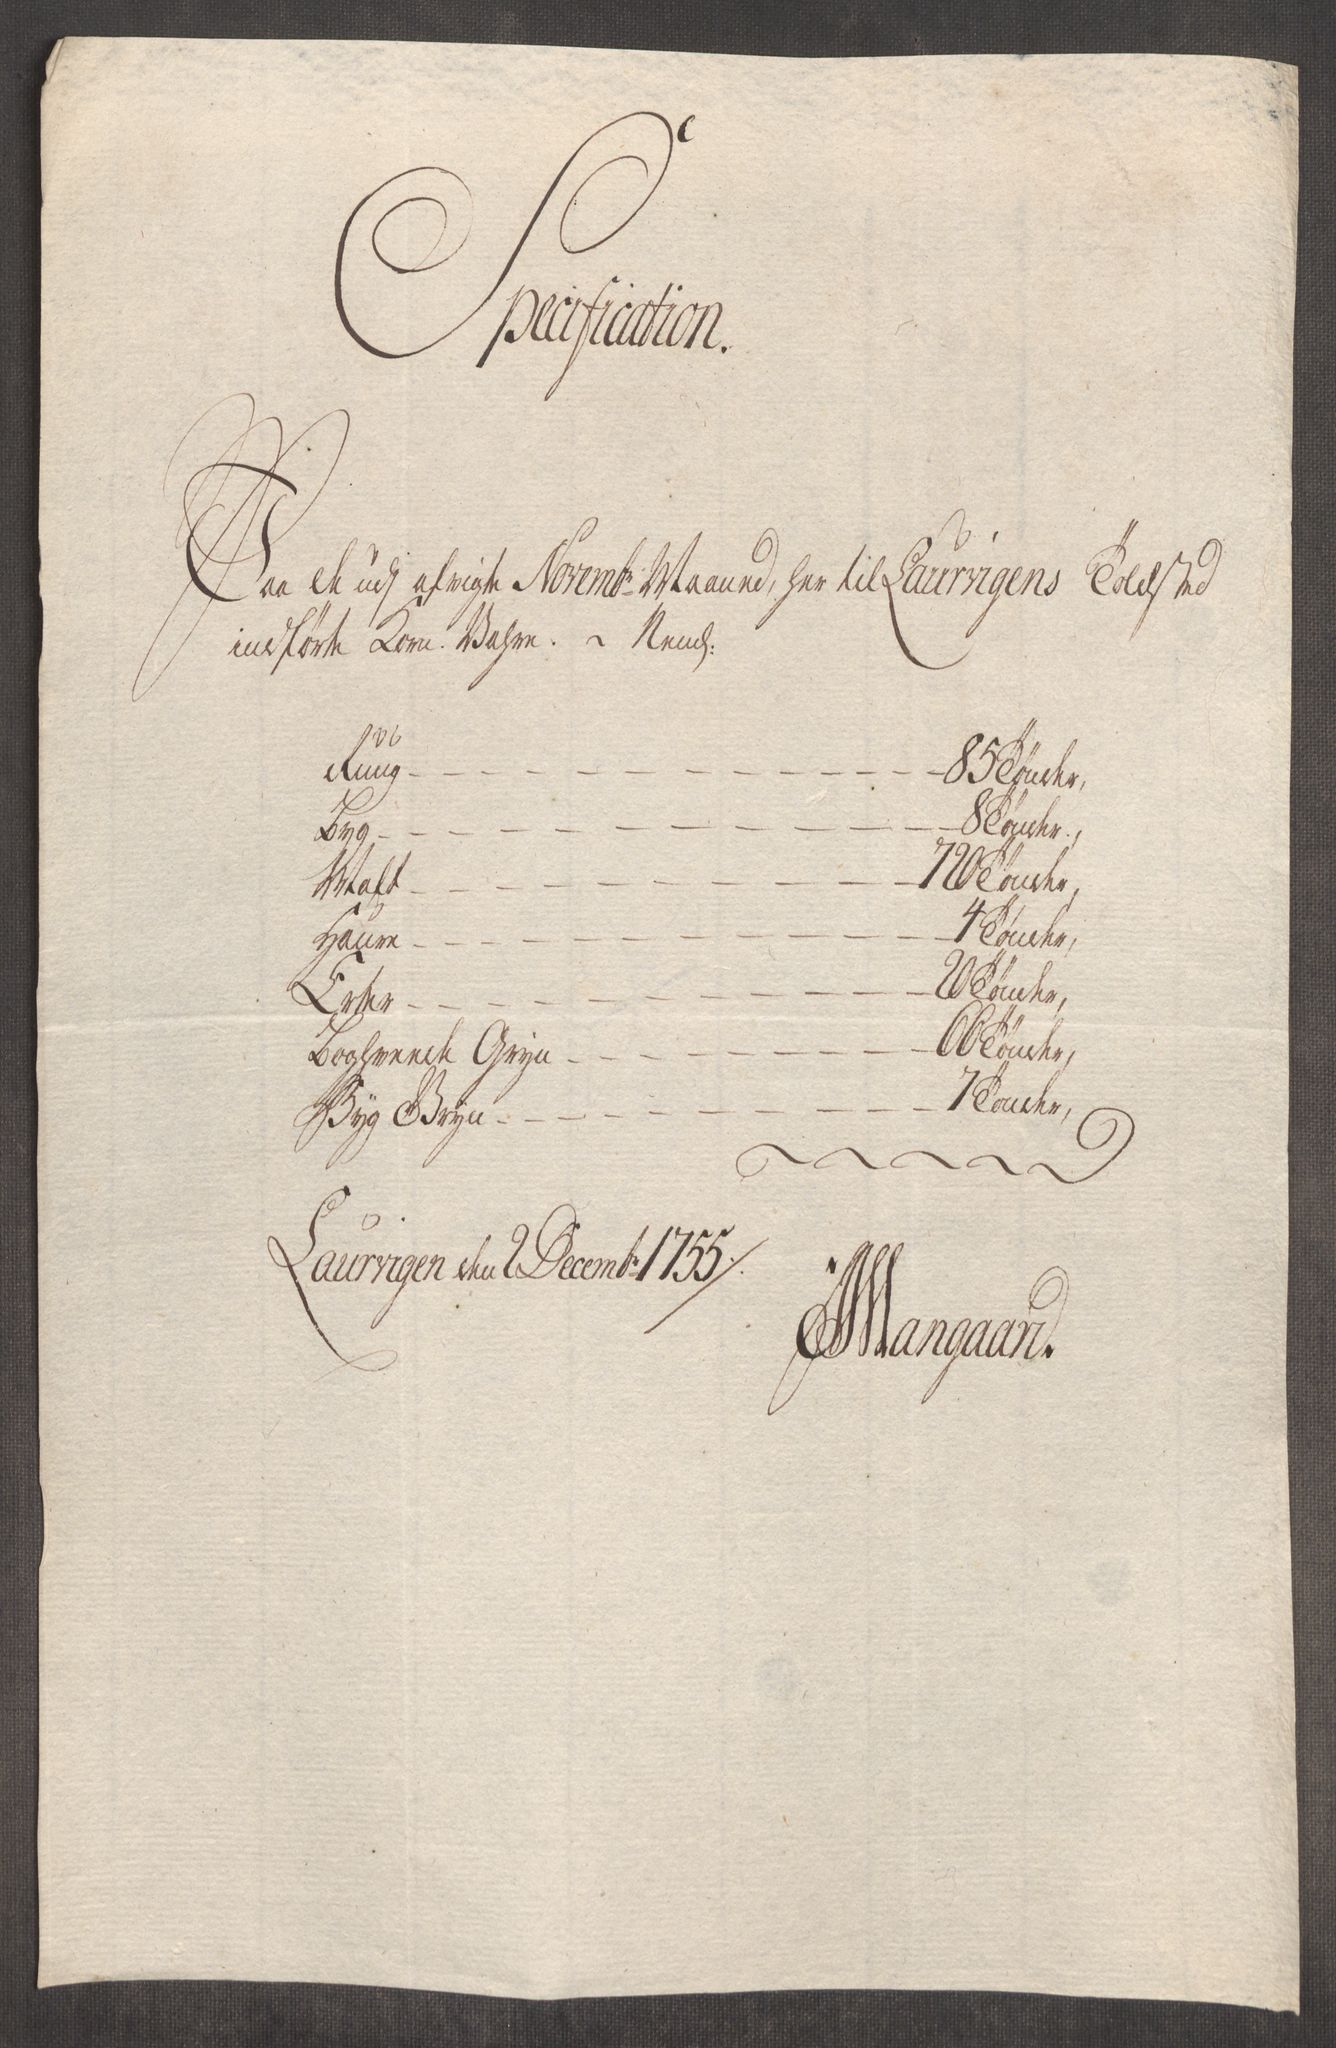 Specification.
Paa de udj afvigte Novembr: Maaned, her til Laurvigens Toldsted
indførte Korn-Vahre. ~ Neml:
Rug 85 Tønder,
Byg 8 Tønder.,
Malt 720 Tønder,
Haure 4 Tønder,
Erter 20 Tønder,
Boghveede Gryn 66 Tønder,
Byg Gryn 7 Tønder,
Laurvigen den 2 Decembr: 1755.
Mangaard.